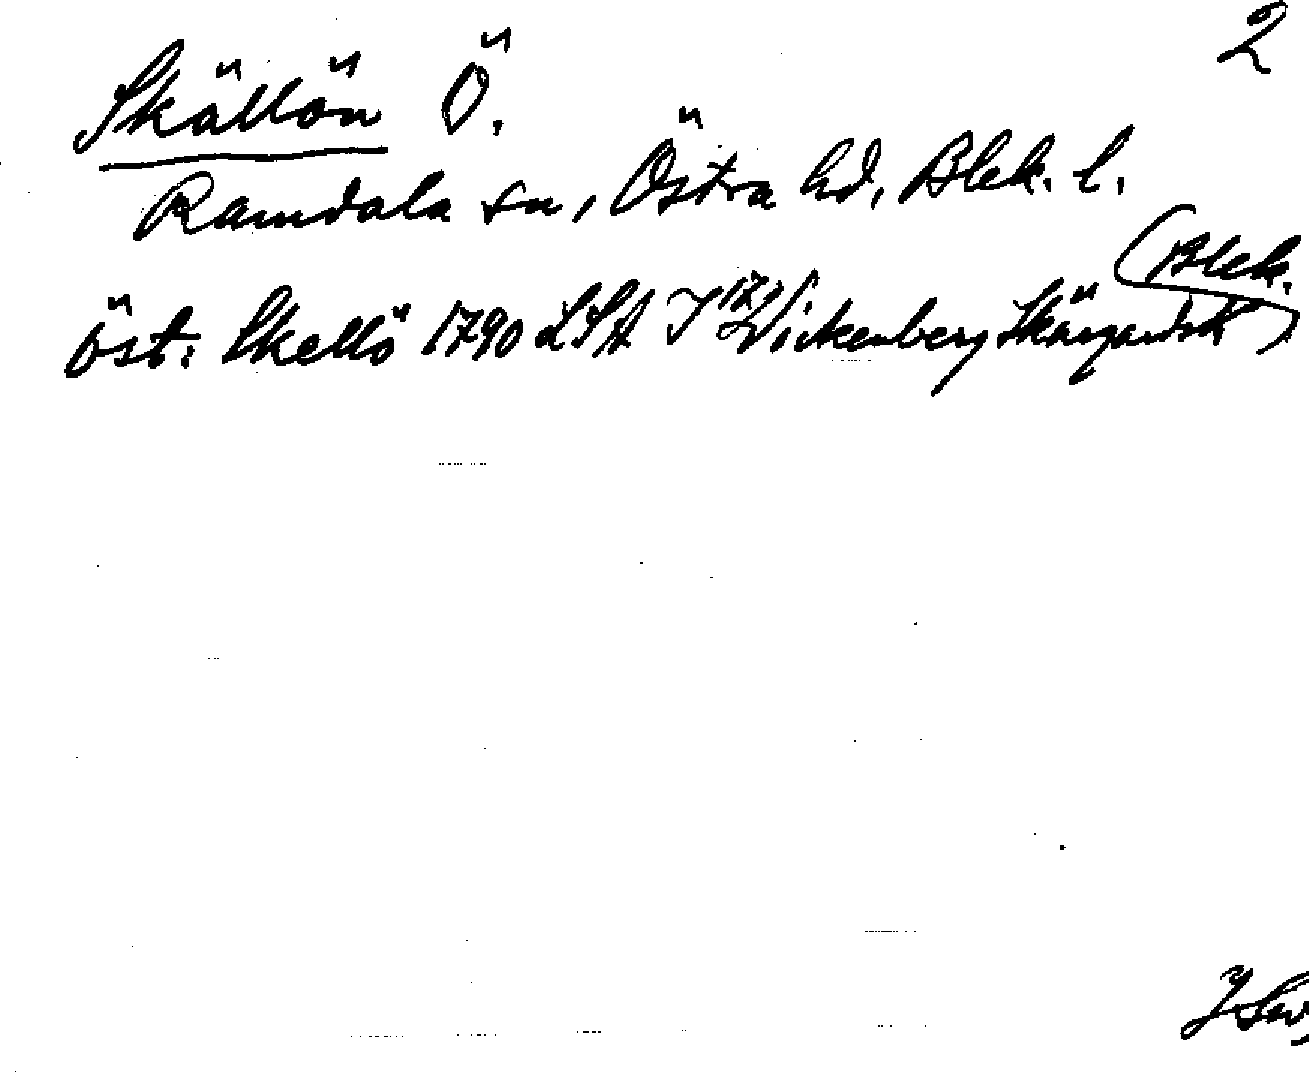 2
Skällön Ö.
Ramdala sn, Östra hd, Blek. l.
öst. Skellö 1790 LSA I 171 Wickenberg (Blek. Skärgårdsk)
JSw